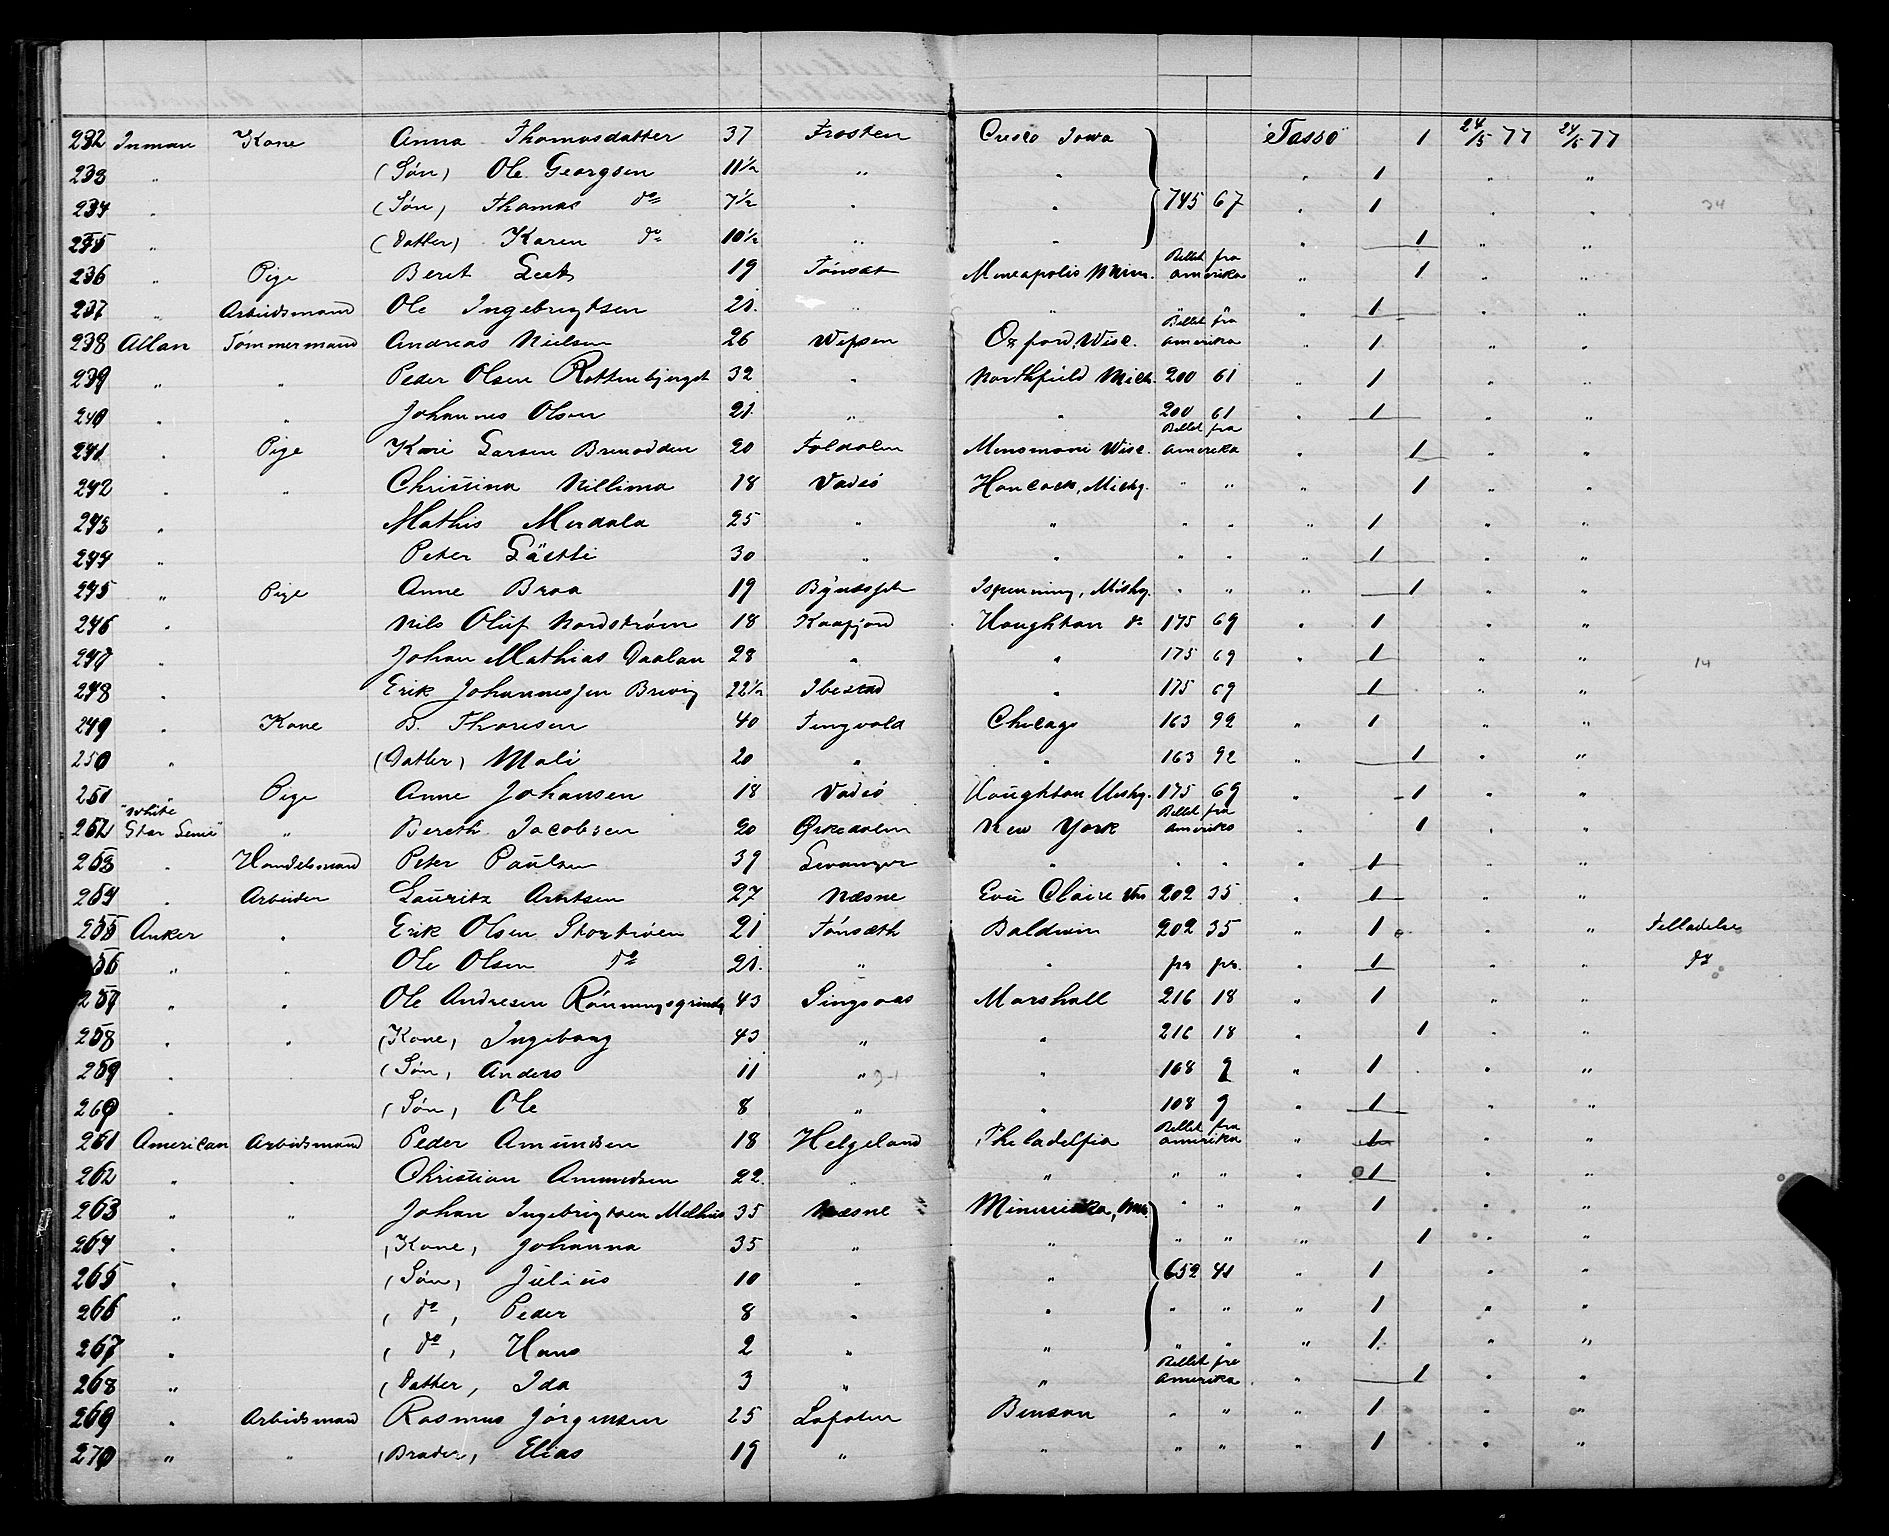 232 Inman Kone Anna Thomasdatter 37 Frosten Cresco Iowa "Tasso" 1 24/5 77 24/5 77
233 " (Søn) Ole Georgsen 11½ " " " 1 " "
234 " (Søn) Thomas do 7½ " " 745 67 " 1 " " 34
235 " (Datter) Karen do 10½ " " " 1 " "
236 " Pige Berit 19 Tønset Mineapolis Minn. Billet fra Amerika " 1 " "
237 " Arbeidsmand Ole Ingebrigtsen 21. " " " " " 1 " "
238 Allan Tømmermand Andreas Nielsen 26 Vefsen Oxford, Wisc. Billet fra Amerika " 1 " "
239 " " Peder Olsen Rottenbjerget 32 " Northfield Mich. 200 61 " 1 " "
240 " " Johannes Olsen 21. " " 200 61 " 1 " "
241 " Pige Kari Larsen Brenodden 20 Foldalen Menomoni Wisc. Billet fra Amerika " 1 " "
242 " " Christina Nillima 18 Vadsö Hancock, Michg. " " " 1 " "
243 " Mathis Merdala 25 " " " " " 1 " "
244 " Peter Lästti 30 " " " " " 1 " "
245 " Pige Anne Braa 19 Bynesset Ispenning, Michg. " " " 1 " "
246 " Nils Oluf Nordstrøm 18 Kaafjord Houghton do 175 69 " 1 " "
247 " Johan Mathias Daalan 28 " " 175 69 " 1 " " 14
248 " Erik Johannessen Brevig 22½ Ibestad " 175 69 1 " "
249 " Kone B. Thoresen 40 Tingvold Chicago 163 92 " 1 " "
250 " (Datter) Mali 20 " " 163 92 1 " "
251 " Pige Anne Johansen 18 Vadsö Houghton Michg. 175 69 " 1 " "
252 "White Star Linie" " Bereth Jacobsen 20 Ørkedalen New York Billet fra Amerika " 1 " "
253 " Handelsmand Peter Paulsen 39 Levanger " " " " 1 " "
254 " Arbeider Lauritz Arntsen 27 Næsne Eou Claire Wis 202 35 " 1 " "
255 Anker " Erik Olsen Stortrøen 21 Tønsæth Baldwin 202 35 " 1 " " Telladelse
256 " " Ole Olsen do 21. " " pr pr. " 1 " " do
257 " " Ole Andresen Rønningsgrinda 43 Singsaas Marshall 216 18 " 1 " "
258 " " (Kone, Ingeborg 43 " " 216 18 " 1 " "
259 " " (Søn, Anders 11 " " 108 9 " 1 " "
260 " (Søn, Ole 8 " " 108 9 " 1 " "
261 American Arbeidsmand Peder Amundsen 18 Helgeland Philadelfia Billet fra Amerika " 1 " "
262 " " Christian Amundsen 22. " " " " " 1 " "
263 " " Johan Ingebrigtsen Melhus 35 Næsne " " " 1 " "
264 " (Kone, Johanna 35 " " " " " 1 " "
265 " (Søn, Julius 10 " " 652 41 " 1 " "
266 " (do, Peder 8 " " " " " 1 " "
267 " (do, Hans 2 " " " " " 1 " "
268 " (Datter, Ida 3 " " Billet fra Amerika " 1 " "
269 " Arbeidsmand Rasmus Jörgensen 25 Lofoten Benson " " " 1 " "
270 " " (Broder, Elias 19 " " " " " 1 " "